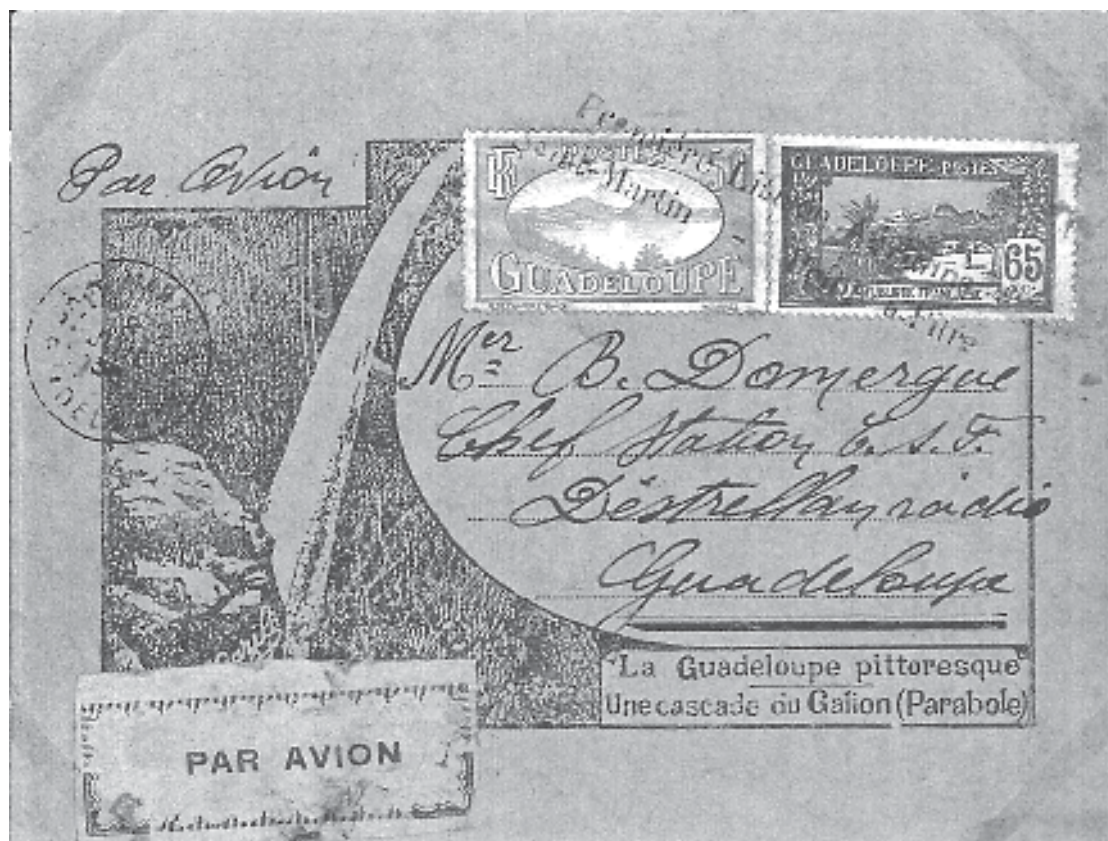 Par Avion
Première Liaison
St Martin
RF POSTES 5
GUADELOUPE
GUADELOUPE-POSTES
65
à Pitre
Mer B. Domergue
Chef Station C.S.F.
Déstrellan radio
Guadeloupe
"La Guadeloupe pittoresque"
Une cascade du Galion (Parabole)
PAR AVION